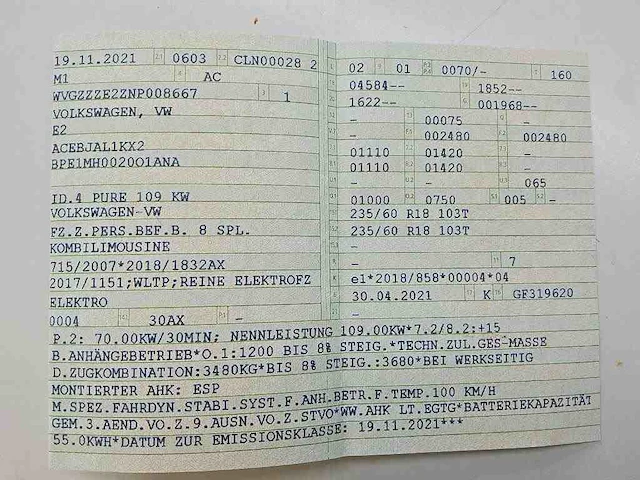 19.11.2021 0603 CLN00028 2
M1 AC
WVGZZZE2ZNP008667 1
VOLKSWAGEN, VW
E2
ACEBJAL1KX2
BPE1MH002001ANA
ID.4 PURE 109 KW
VOLKSWAGEN-VW
FZ.Z.PERS.BEF.B. 8 SPL.
KOMBILIMOUSINE
715/2007*2018/1832AX
2017/1151;WLTP;REINE ELEKTROFZ
ELEKTRO
0004 30AX -
02 01 0070/- 160
04584-- 1852--
1622-- 001968--
- 00075 -
- 002480 002480
01110 01420 -
01110 01420 -
- - 065
01000 0750 005 -
235/60 R18 103T
235/60 R18 103T
-
- 7
e1*2018/858*00004*04
30.04.2021 K GF319620
-
P.2: 70.00KW/30MIN; NENNLEISTUNG 109.00KW*7.2/8.2:+15
B.ANHÄNGEBETRIEB*O.1:1200 BIS 8% STEIG.*TECHN.ZUL.GES-MASSE
D.ZUGKOMBINATION:3480KG*BIS 8% STEIG.:3680*BEI WERKSEITIG
MONTIERTER AHK: ESP
M.SPEZ.FAHRDYN.STABI.SYST.F.ANH.BETR.F.TEMP.100 KM/H
GEM.3.AEND.VO.Z.9.AUSN.VO.Z STVO*WW.AHK LT.EGTG*BATTERIEKAPAZITÄT
55.0KWH*DATUM ZUR EMISSIONSKLASSE: 19.11.2021***